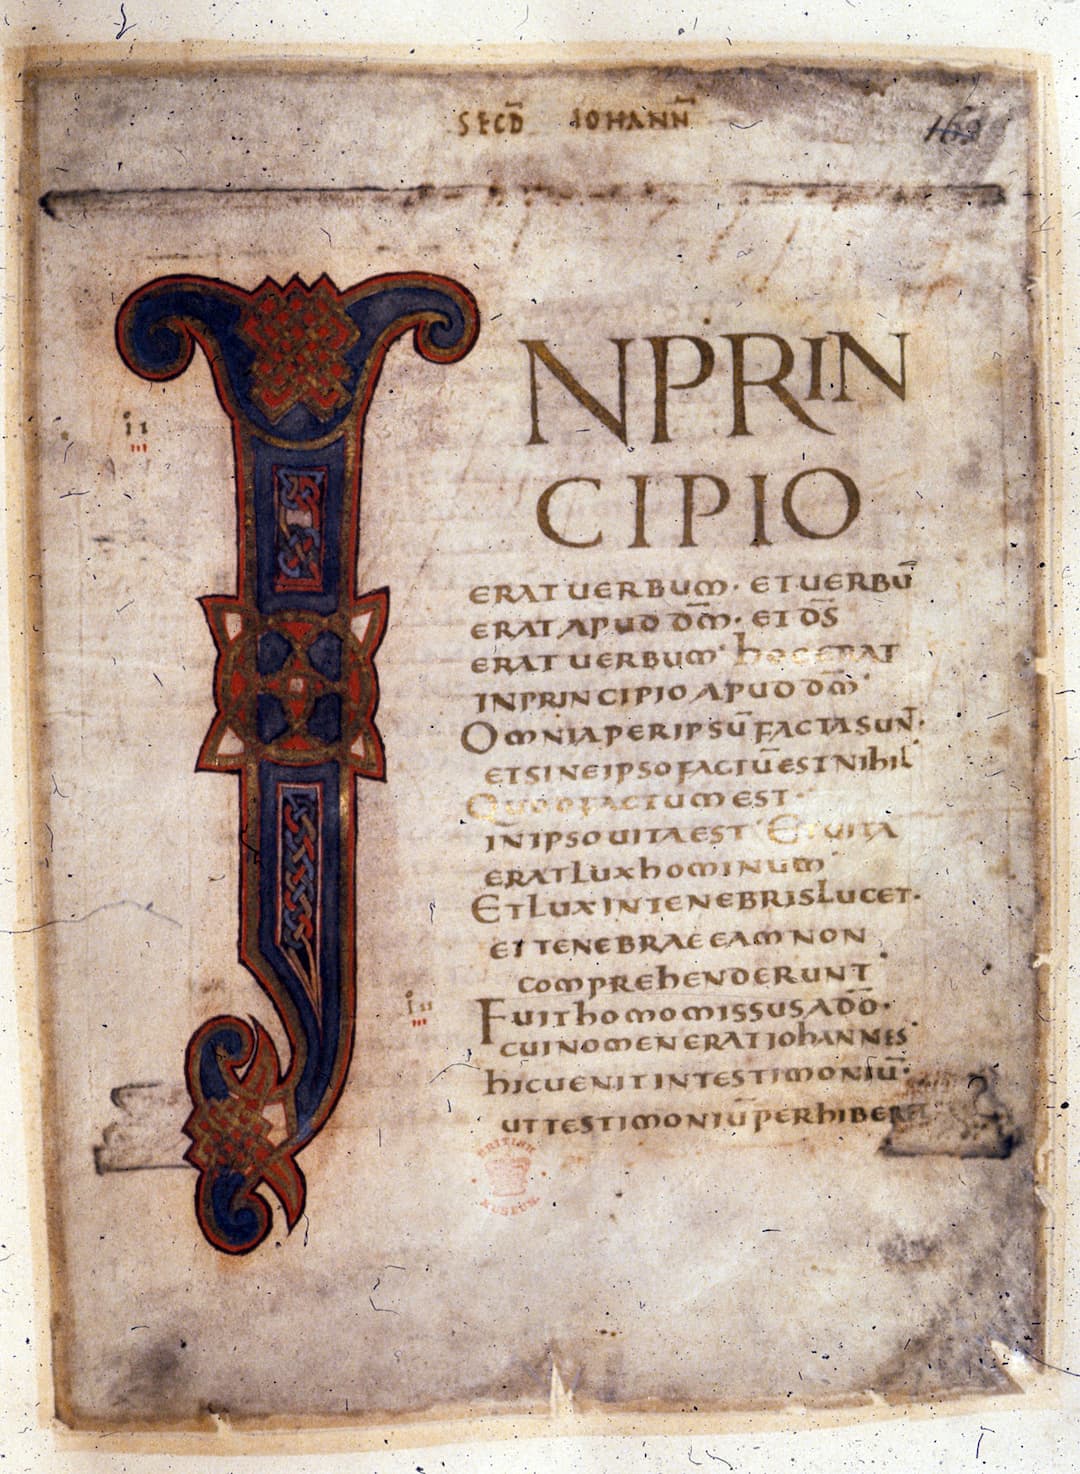 SECD̅ IOHANN̅
162
INPRIN
CIPIO
ERAT UERBUM· ET UERBU̅
ERAT APUD DM̅· ET DS̅
ERAT UERBUM· hOC ERAT
IN PRINCIPIO APUD DM̅·
OMNIA PER IPSU̅ FACTA SUN̅·
ET SINE IPSO FACTU̅ EST NIhIL·
QUOD FACTUM EST·
IN IPSO UITA EST· ET UITA
ERAT LUX hOMINUM·
ET LUX IN TENEBRIS LUCET·
ET TENEBRAE EAM NON
COMPREhENDERUNT·
FUIT hOMO MISSUS A DO̅·
CUI NOMEN ERAT IOhANNES·
hIC UENIT IN TESTIMONIU̅·
UT TESTIMONIU̅ PERhIBER
BRITISH
MUSEUM